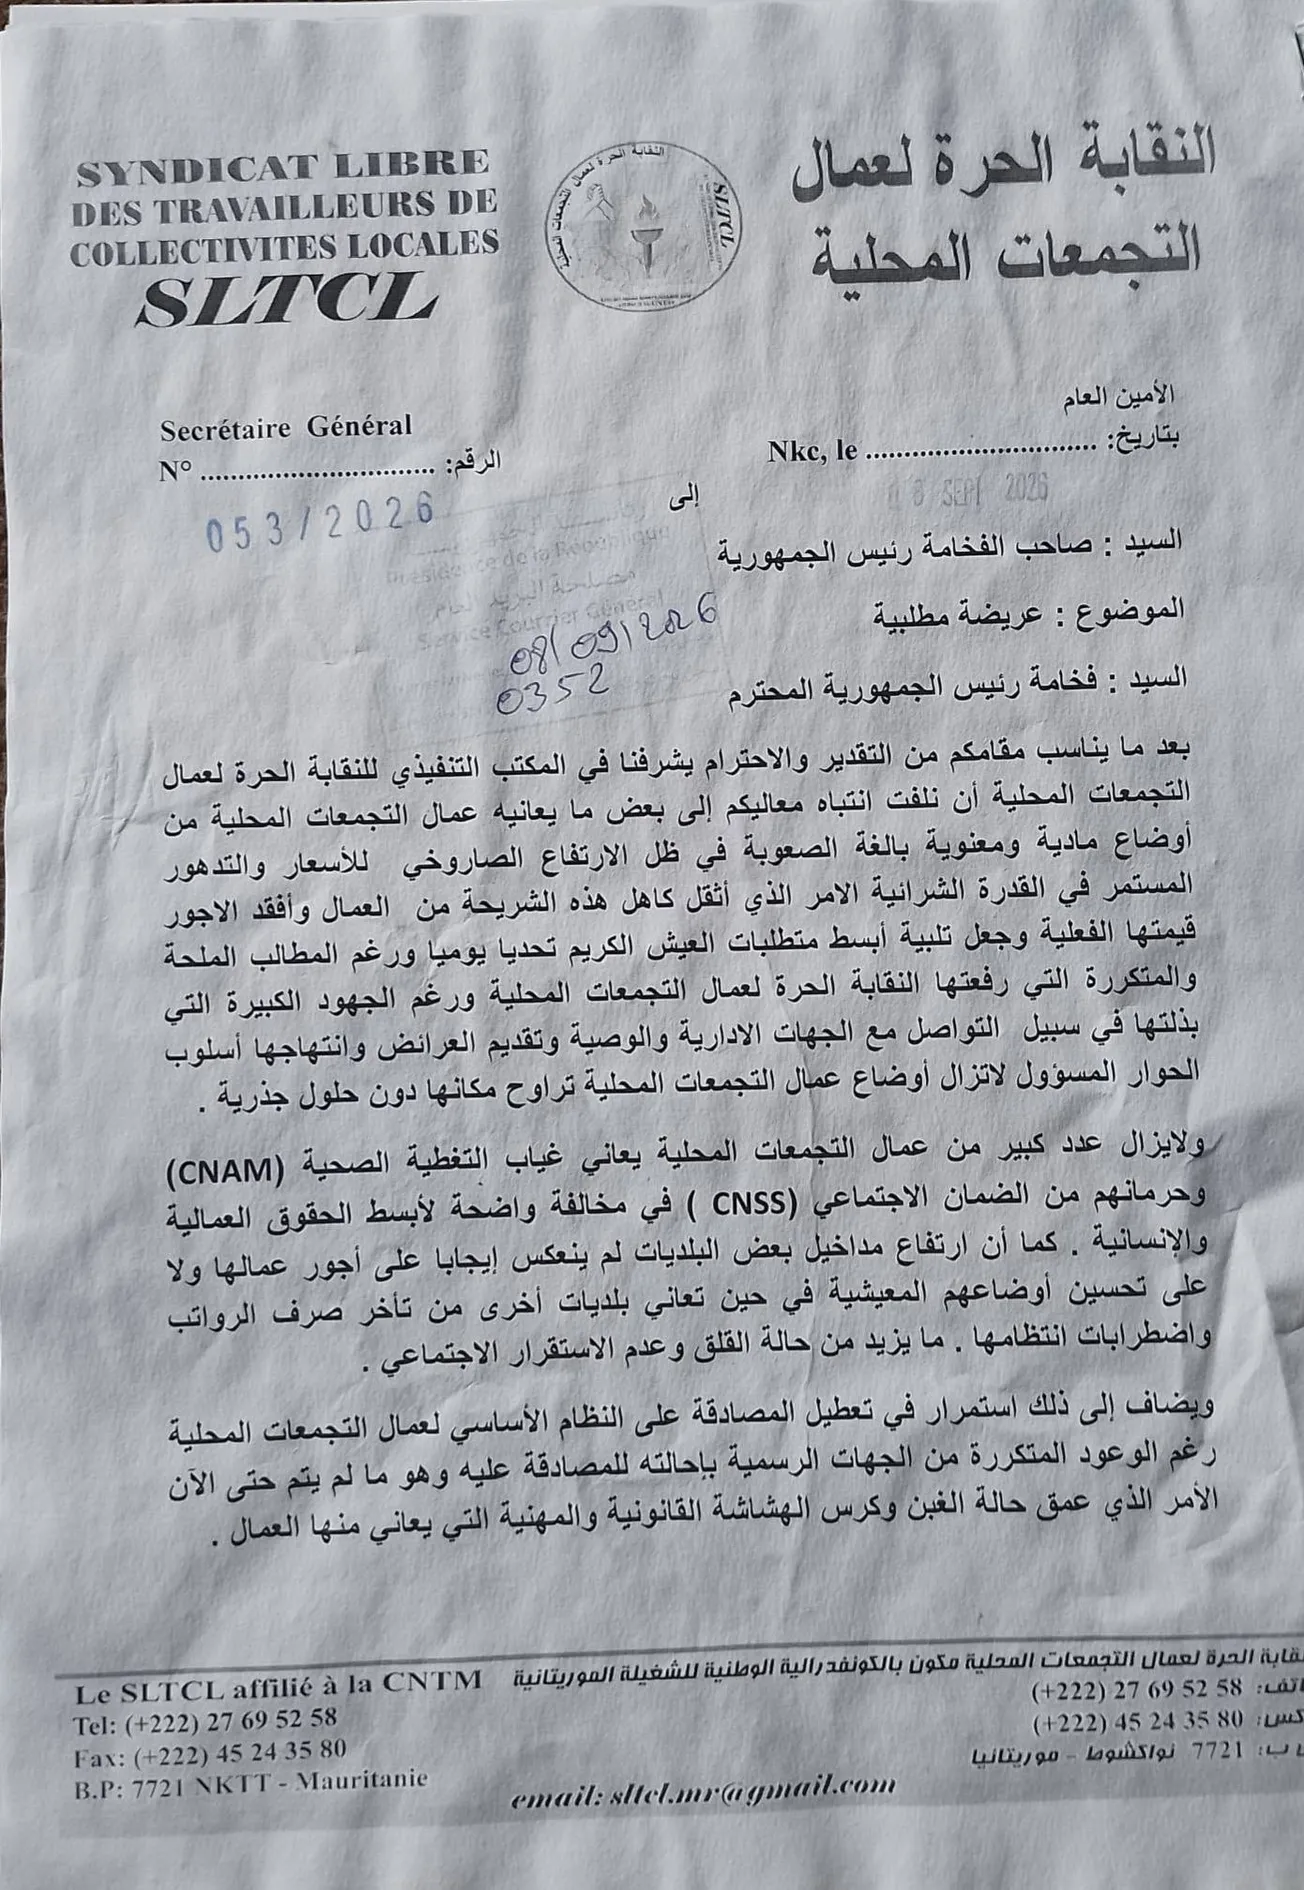 SYNDICAT LIBRE
DES TRAVAILLEURS DE
COLLECTIVITES LOCALES
SLTCL
النقابة الحرة لعمال
التجمعات المحلية
النقابة الحرة لعمال التجمعات المحلية
SLTCL
Secrétaire Général
N° .............................. الرقم:
053/2026
الأمين العام
Nkc, le .............................. بتاريخ:
SEPT 2026
إلى
Présidence de la République
مصلحة البريد العام
Service Courrier Général
08/09/2026
0352
السيد : صاحب الفخامة رئيس الجمهورية
الموضوع : عريضة مطلبية
السيد : فخامة رئيس الجمهورية المحترم
بعد ما يناسب مقامكم من التقدير والاحترام يشرفنا في المكتب التنفيذي للنقابة الحرة لعمال
التجمعات المحلية أن نلفت انتباه معاليكم إلى بعض ما يعانيه عمال التجمعات المحلية من
أوضاع مادية ومعنوية بالغة الصعوبة في ظل الارتفاع الصاروخي للأسعار والتدهور
المستمر في القدرة الشرائية الامر الذي أثقل كاهل هذه الشريحة من العمال وأفقد الاجور
قيمتها الفعلية وجعل تلبية أبسط متطلبات العيش الكريم تحديا يوميا ورغم المطالب الملحة
والمتكررة التي رفعتها النقابة الحرة لعمال التجمعات المحلية ورغم الجهود الكبيرة التي
بذلتها في سبيل التواصل مع الجهات الادارية والوصية وتقديم العرائض وانتهاجها أسلوب
الحوار المسؤول لاتزال أوضاع عمال التجمعات المحلية تراوح مكانها دون حلول جذرية .
ولايزال عدد كبير من عمال التجمعات المحلية يعاني غياب التغطية الصحية (CNAM)
وحرمانهم من الضمان الاجتماعي (CNSS ) في مخالفة واضحة لأبسط الحقوق العمالية
والإنسانية . كما أن ارتفاع مداخيل بعض البلديات لم ينعكس إيجابا على أجور عمالها ولا
على تحسين أوضاعهم المعيشية في حين تعاني بلديات أخرى من تأخر صرف الرواتب
واضطرابات انتظامها . ما يزيد من حالة القلق وعدم الاستقرار الاجتماعي .
ويضاف إلى ذلك استمرار في تعطيل المصادقة على النظام الأساسي لعمال التجمعات المحلية
رغم الوعود المتكررة من الجهات الرسمية بإحالته للمصادقة عليه وهو ما لم يتم حتى الآن
الأمر الذي عمق حالة الغبن وكرس الهشاشة القانونية والمهنية التي يعاني منها العمال .
Le SLTCL affilié à la CNTM
Tel: (+222) 27 69 52 58
Fax: (+222) 45 24 35 80
B.P: 7721 NKTT - Mauritanie
قابة الحرة لعمال التجمعات المحلية مكون بالكونفدرالية الوطنية للشغيلة الموريتانية
اتف: 58 52 69 27 (222+)
كس: 80 35 24 45 (222+)
ب: 7721 نواكشوط - موريتانيا
email: sltcl.mr@gmail.com